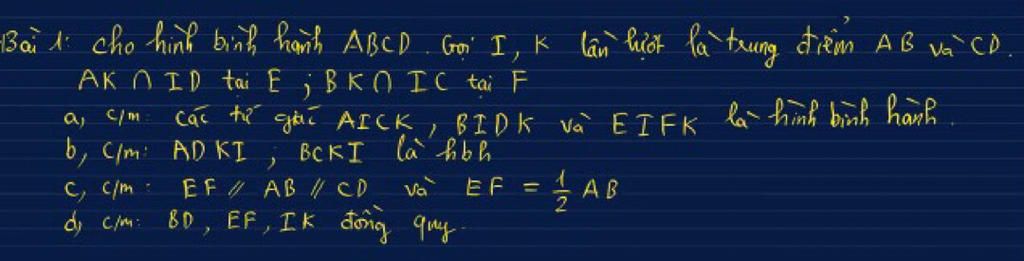 Bài 1: cho hình bình hành ABCD. Gọi I, K lần lượt là trung điểm AB và CD.
AK ∩ ID tại E ; BK ∩ IC tại F
a, c/m: các tứ giác AICK, BIDK và EIFK là hình bình hành.
b, c/m: ADKI ; BCKI là hbh
c, c/m: EF // AB // CD và EF = 1/2 AB
d, c/m: BD, EF, IK đồng quy.